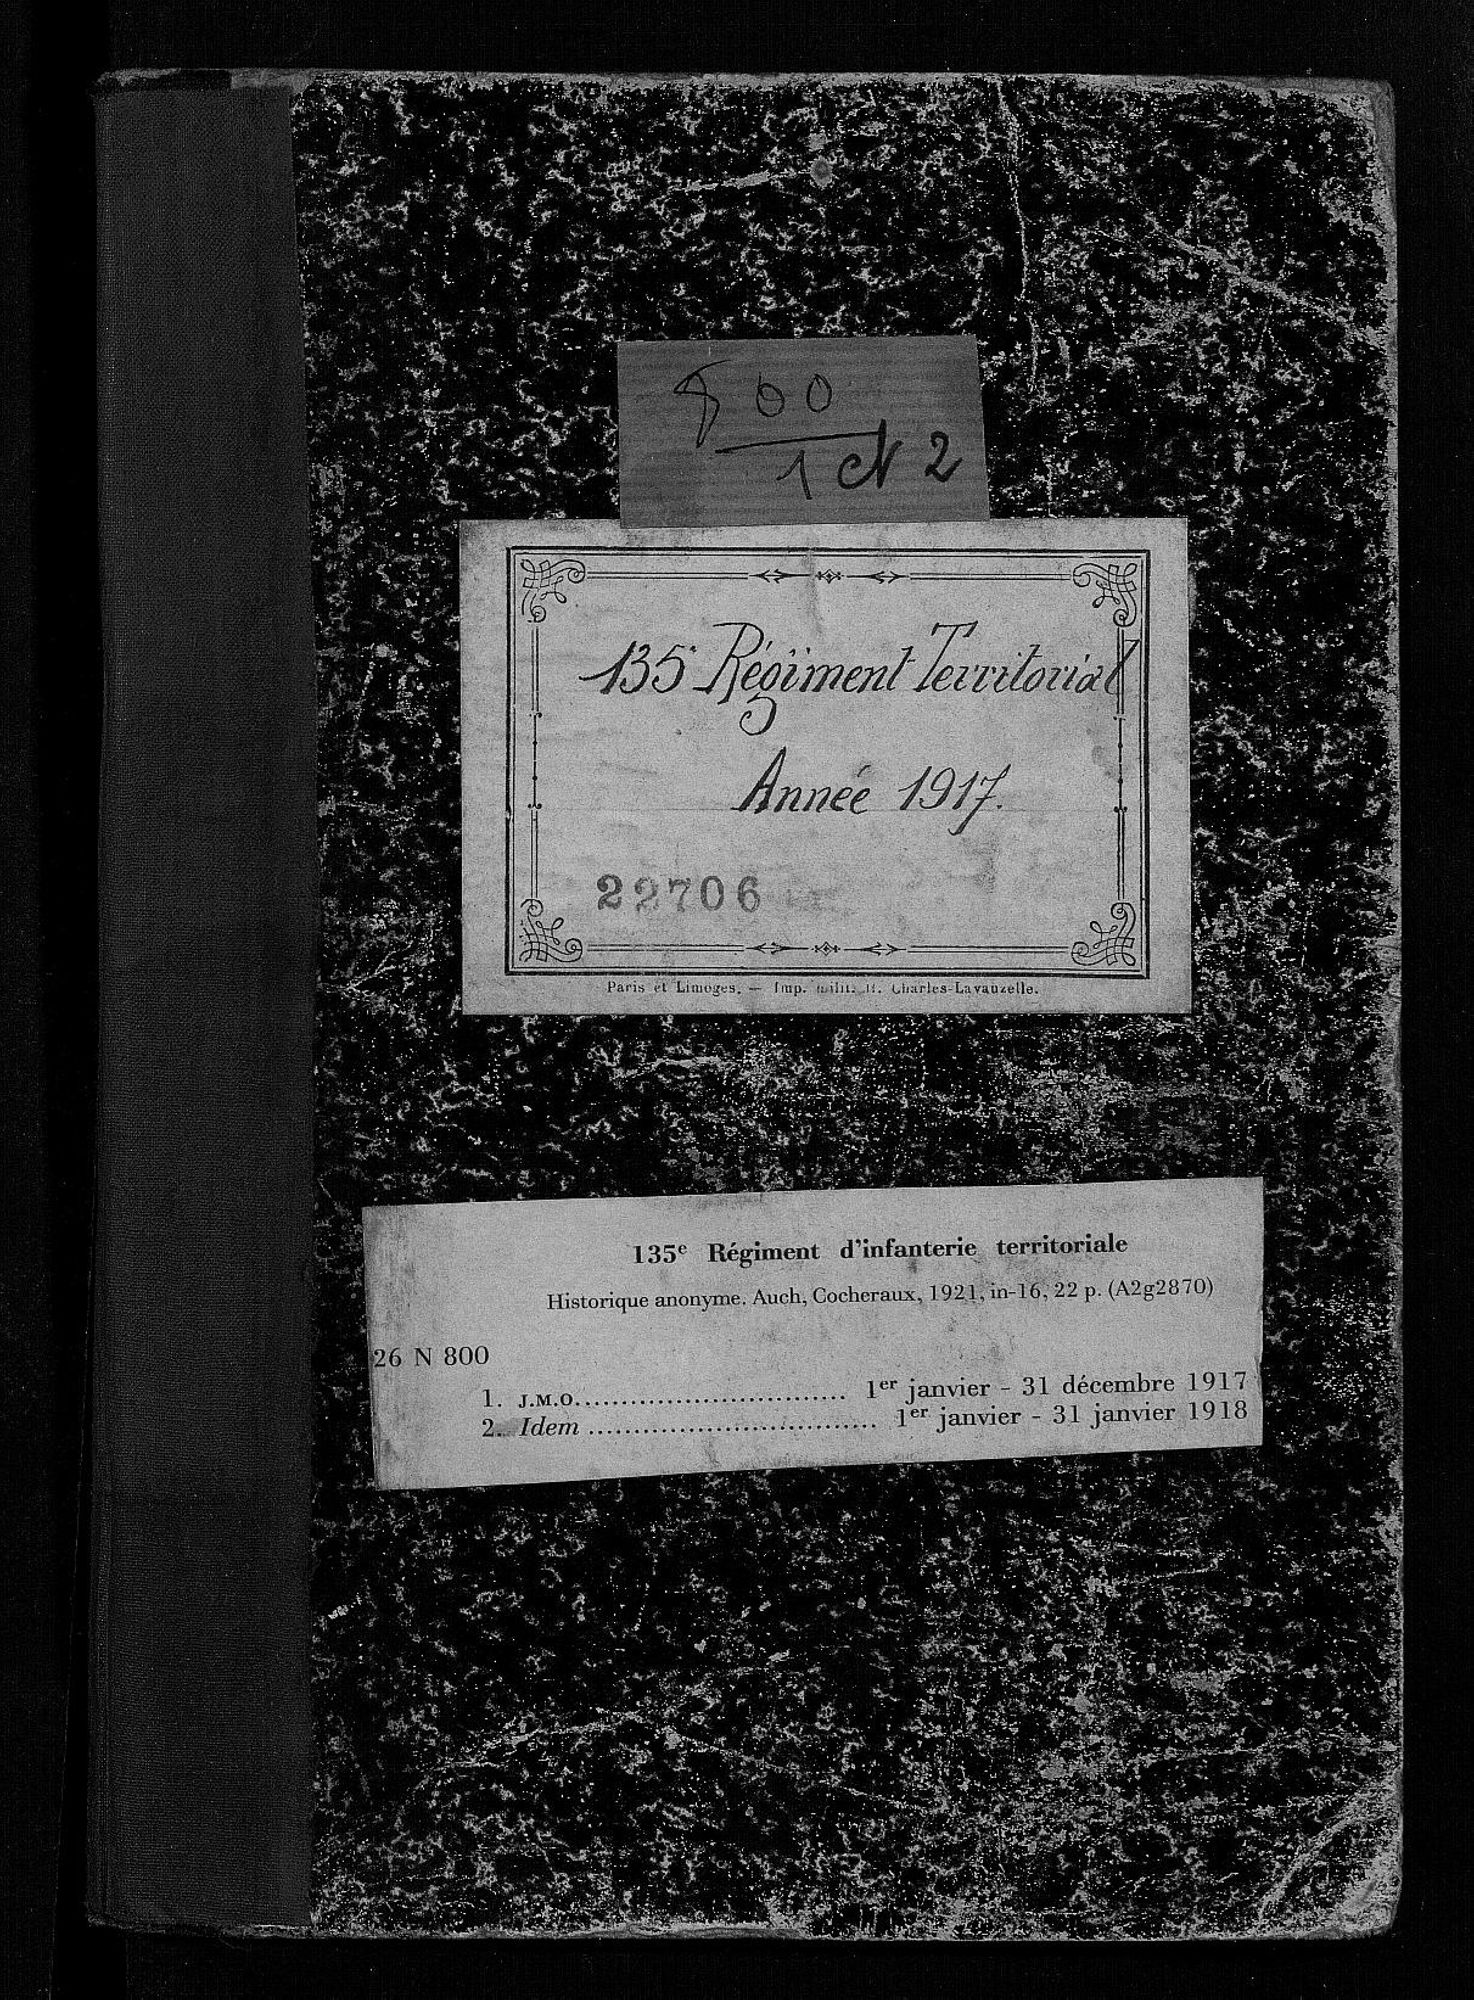 800
1 et 2
135e Régiment Territorial
Année 1917.
22706
Paris et Limoges. — Imp. milit. H. Charles-Lavauzelle.
135e Régiment d'infanterie territoriale
Historique anonyme. Auch, Cocheraux, 1921, in-16, 22 p. (A2g2870)
26 N 800
1. J.M.O.............................. 1er janvier - 31 décembre 1917
2. Idem ................................ 1er janvier - 31 janvier 1918